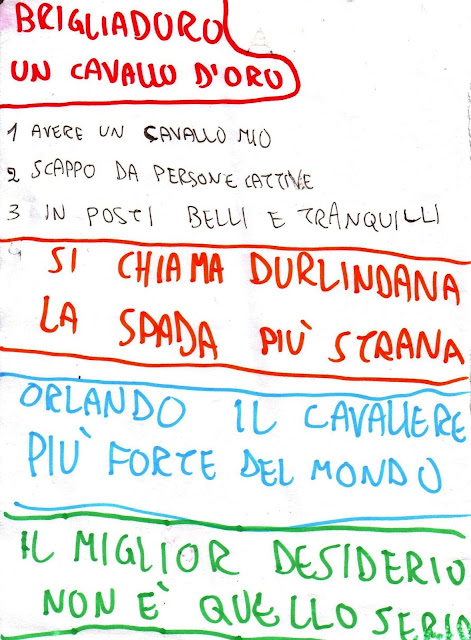 BRIGLIADORO
UN CAVALLO D'ORO
1 AVERE UN CAVALLO MIO
2 SCAPPO DA PERSONE CATTIVE
3 IN POSTI BELLI E TRANQUILLI
SI CHIAMA DURLINDANA
LA SPADA PIÙ STRANA
ORLANDO IL CAVALIERE
PIÙ FORTE DEL MONDO
IL MIGLIOR DESIDERIO
NON È QUELLO SERIO